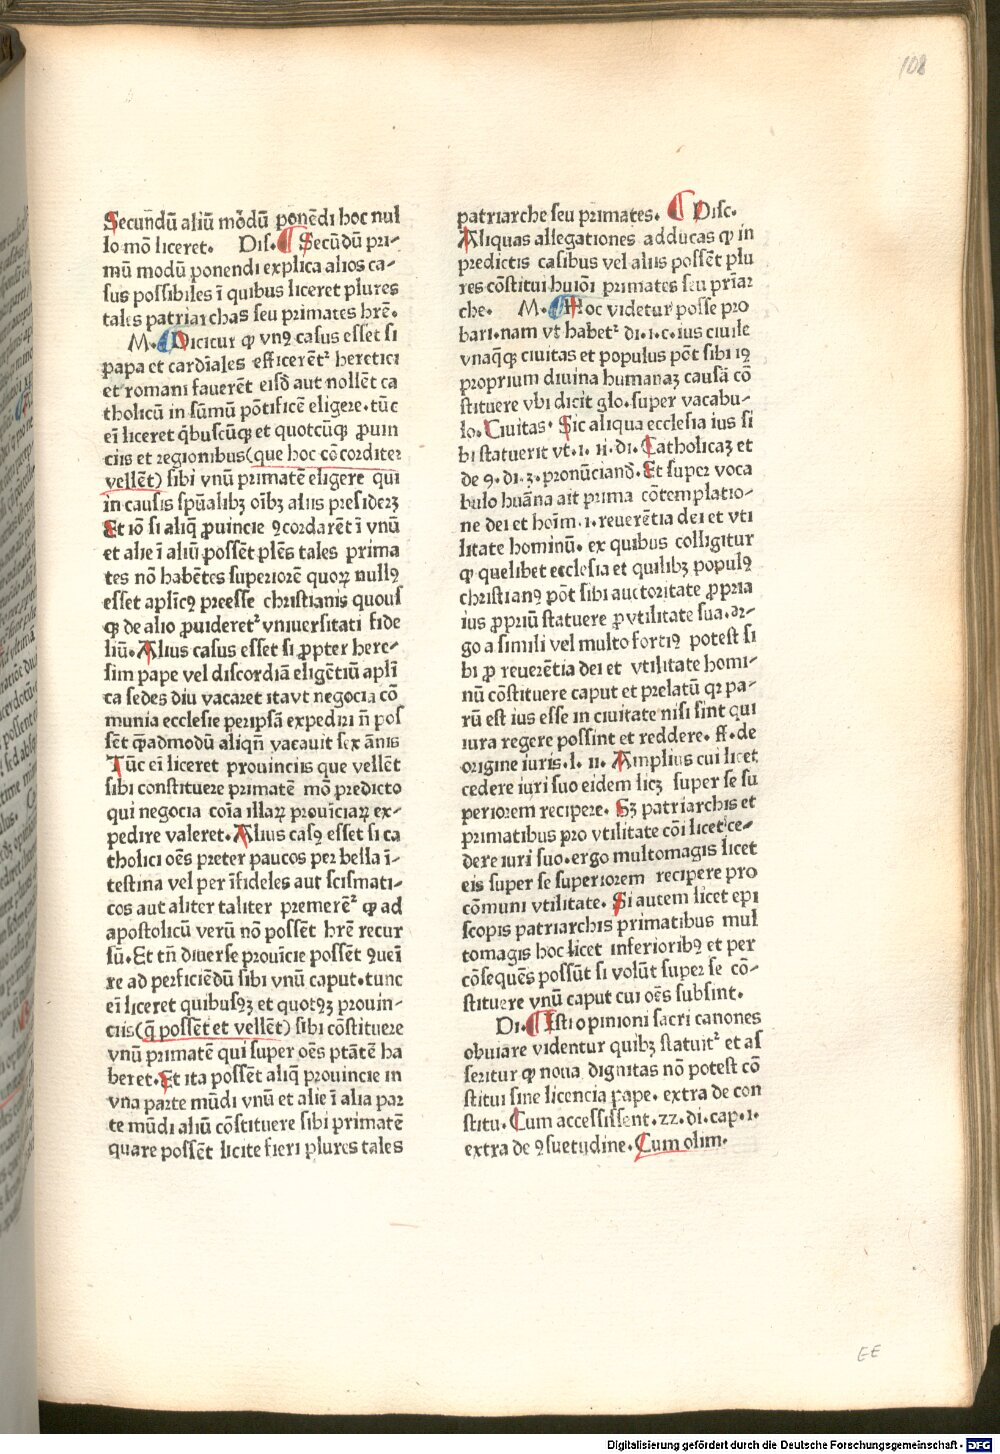 108
Secundū aliū modū ponēdi hoc nul
lo mō liceret. Dis. Secūdū pri-
mū modū ponendi explica alios ca-
sus possibiles ī quibus liceret plures
tales patriarchas seu primates hr̄e.
M. Dicitur ꝙ vnꝰ casus esset si
papa et cardīales efficerētᷣ heretici
et romani fauerēt eisd̄ aut nollēt ca
tholicū in sūmū pōtificē eligere. tūc
eī liceret qͥbuscūqꝫ et quotcūqꝫ ꝓuin
ciis et regionibus (que hoc cōcorditer
vellēt) sibi vnū primatē eligere qui
in causis spūalibꝫ oībꝫ aliis presiderꝫ
Et iō si aliq̄ ꝓuincie ꝯcordarēt ī vnū
et alie ī aliū possēt plēs tales prima
tes nō habētes superiorē quoꝝ nullꝰ
esset aplīcꝰ preesse christianis quous
qꝫ de alio ꝓuideretᷣ vniuersitati fide
liū. Alius casus esset si ꝓpter here-
sim pape vel discordiā eligētiū aplī
ca sedes diu vacaret itavt negocia cō
munia ecclesie peripsā expediri n̄ pos
sēt q̄admodū aliqn̄ vacauit sex ānis
Tūc eī liceret prouinciis que vellēt
sibi constituere primatē mō predicto
qui negocia coīa illaꝝ prouīciaꝝ ex-
pedire valeret. Alius casꝰ esset si ca
tholici oēs preter paucos per bella ī-
testina vel per īfideles aut scismati-
cos aut aliter taliter premerēᷣ ꝙ ad
apostolicū verū nō possēt hr̄e recur
sū. Et tn̄ diuerse prouīcie possēt ꝯueī
re ad perficiēdū sibi vnū caput. tunc
eī liceret quibusꝯꝫ et quotꝯꝫ prouin-
ciis (q̄ possēt et vellēt) sibi cōstituere
vnū primatē qui super oēs ptātē ha
beret. Et ita possēt aliq̄ prouincie in
vna parte mūdi vnū et alie ī alia par
te mūdi aliū cōstituere sibi primatē
quare possēt licite fieri plures tales
patriarche seu primates. Disc.
Aliquas allegationes adducas ꝙ in
predictis casibus vel aliis possēt plu
res cōstitui huiōi primates seu pr̄iar
che. M. Hoc videtur posse pro
bari. nam vt habetᷣ di. i. c. ius ciuile
vnaqꝫqꝫ ciuitas et populus pōt sibi iꝰ
proprium diuina humanaꝫ causā cō
stituere vbi dicit glo. super vacabu-
lo. Ciuitas. Sic aliqua ecclesia ius si
bi statuerit vt. i. ii. di. Catholicaꝫ et
de ꝯ. di. ꝫ. pronūciand. Et super voca
bulo huāna ait prima cōtemplatio-
ne dei et hoīm. i. reuerētia dei et vti
litate hominū. ex quibus colligitur
ꝙ quelibet ecclesia et quilibꝫ populꝰ
christianꝰ pōt sibi auctoritate ꝓpria
ius ꝓpriū statuere ꝓ vtilitate sua. er-
go a simili vel multo fortiꝰ potest si
bi ꝓ reuerētia dei et vtilitate homi-
nū cōstituere caput et prelatū qꝛ pa-
rū est ius esse in ciuitate nisi sint qui
iura regere possint et reddere. ff. de
origine iuris. l. ii. Amplius cui licet
cedere iuri suo eidem licꝫ super se su
periorem recipere. Sꝫ patriarchis et
primatibus pro vtilitate cōi licet ce-
dere iuri suo. ergo multomagis licet
eis super se superiorem recipere pro
cōmuni vtilitate. Si autem licet epi
scopis patriarchis primatibus mul
tomagis hoc licet inferioribꝰ et per
cōsequēs possūt si volūt super se cō-
stituere vnū caput cui oēs subsint.
Di. Isti opinioni sacri canones
obuiare videntur quibꝫ statuitᷣ et as
seritur ꝙ noua dignitas nō potest cō
stitui sine licencia pape. extra de con
stitu. Cum accessissent. zz. di. cap. i.
extra de ꝯsuetudine. Cum olim.
EE
Digitalisierung gefördert durch die Deutsche Forschungsgemeinschaft - DFG